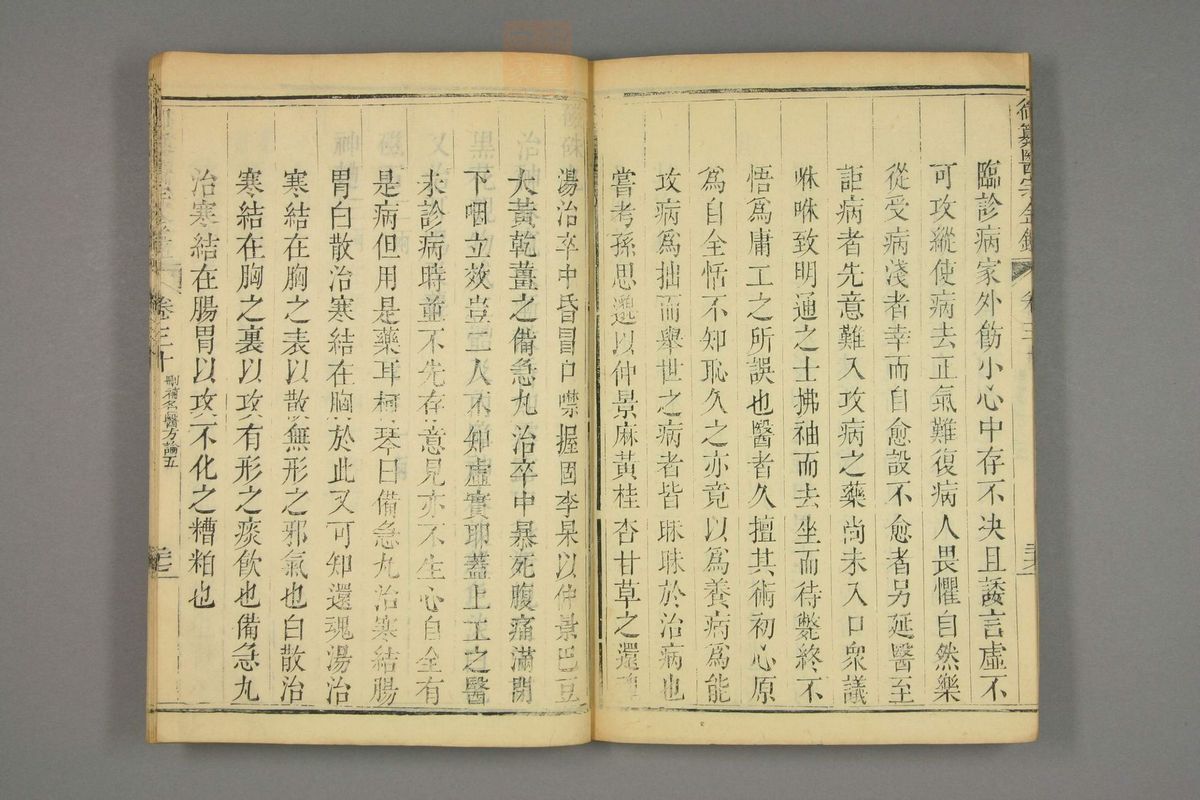 御纂醫宗金鑑
卷三十
臨診病家外飾小心中存不决且諉言虛不
可攻縱使病去正氣難復病人畏懼自然樂
從受病淺者幸而自愈設不愈者另延醫至
詎病者先意難入攻病之藥尚未入口衆議
咻咻致明通之士拂袖而去坐而待斃終不
悟爲庸工之所誤也醫者久擅其術初心原
爲自全恬不知恥久之亦竟以爲養病爲能
攻病爲拙而舉世之病者皆昧昧於治病也
嘗考孫思邈以仲景麻黃桂杏甘草之還魂
湯治卒中昏冒口噤握固李杲以仲景巴豆
大黃乾薑之備急丸治卒中暴死腹痛滿閉
下咽立效豈二人不知虛實耶蓋上工之醫
未診病時並不先存意見亦不生心自全有
是病但用是藥耳柯琴曰備急丸治寒結腸
胃白散治寒結在胸於此又可知還魂湯治
寒結在胸之表以散無形之邪氣也白散治
寒結在胸之裏以攻有形之痰飲也備急丸
治寒結在腸胃以攻不化之糟粕也
卷三十
刪補名醫方論五